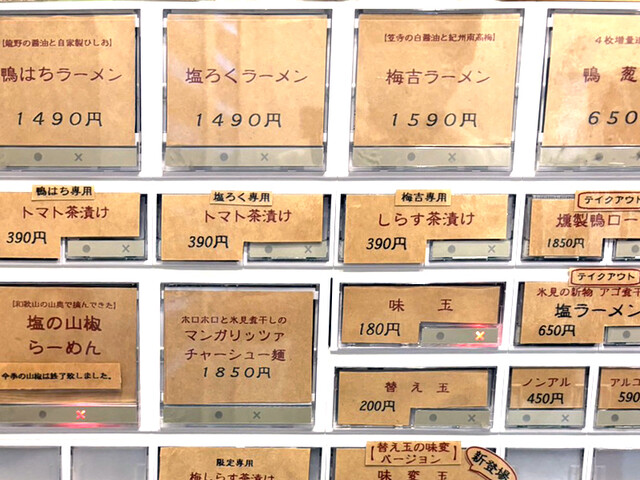 【龍野の醤油と自家製ひしお】
鴨はちラーメン
1490円
塩ろくラーメン
1490円
【笠寺の白醤油と紀州南高梅】
梅吉ラーメン
1590円
4枚増量
鴨 葱
650
鴨はち専用
トマト茶漬け
390円
塩ろく専用
トマト茶漬け
390円
梅吉専用
しらす茶漬け
390円
テイクアウト
燻製鴨ロー
1850円
【和歌山の山奥で摘んできた】
塩の山椒
らーめん
今季の山椒は終了致しました。
ホロホロと氷見煮干しの
マンガリッツァ
チャーシュー麺
1850円
味 玉
180円
テイクアウト
氷見の新物 アゴ煮干
塩ラーメン
650円
替え玉
200円
ノンアル
450円
アルコ
590
限定専用
梅しらす茶漬け
【替え玉の味変
バージョン】
味 変 玉
新登場